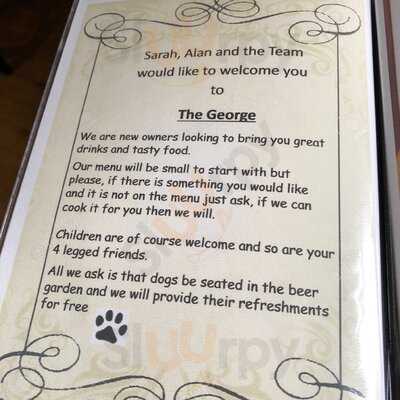 Sarah, Alan and the Team
would like to welcome you
to
The George
We are new owners looking to bring you great
drinks and tasty food.
Our menu will be small to start with but
please, if there is something you would like
and it is not on the menu just ask, if we can
cook it for you then we will.
Children are of course welcome and so are your
4 legged friends.
All we ask is that dogs be seated in the beer
garden and we will provide their refreshments
for free
Sluurpy